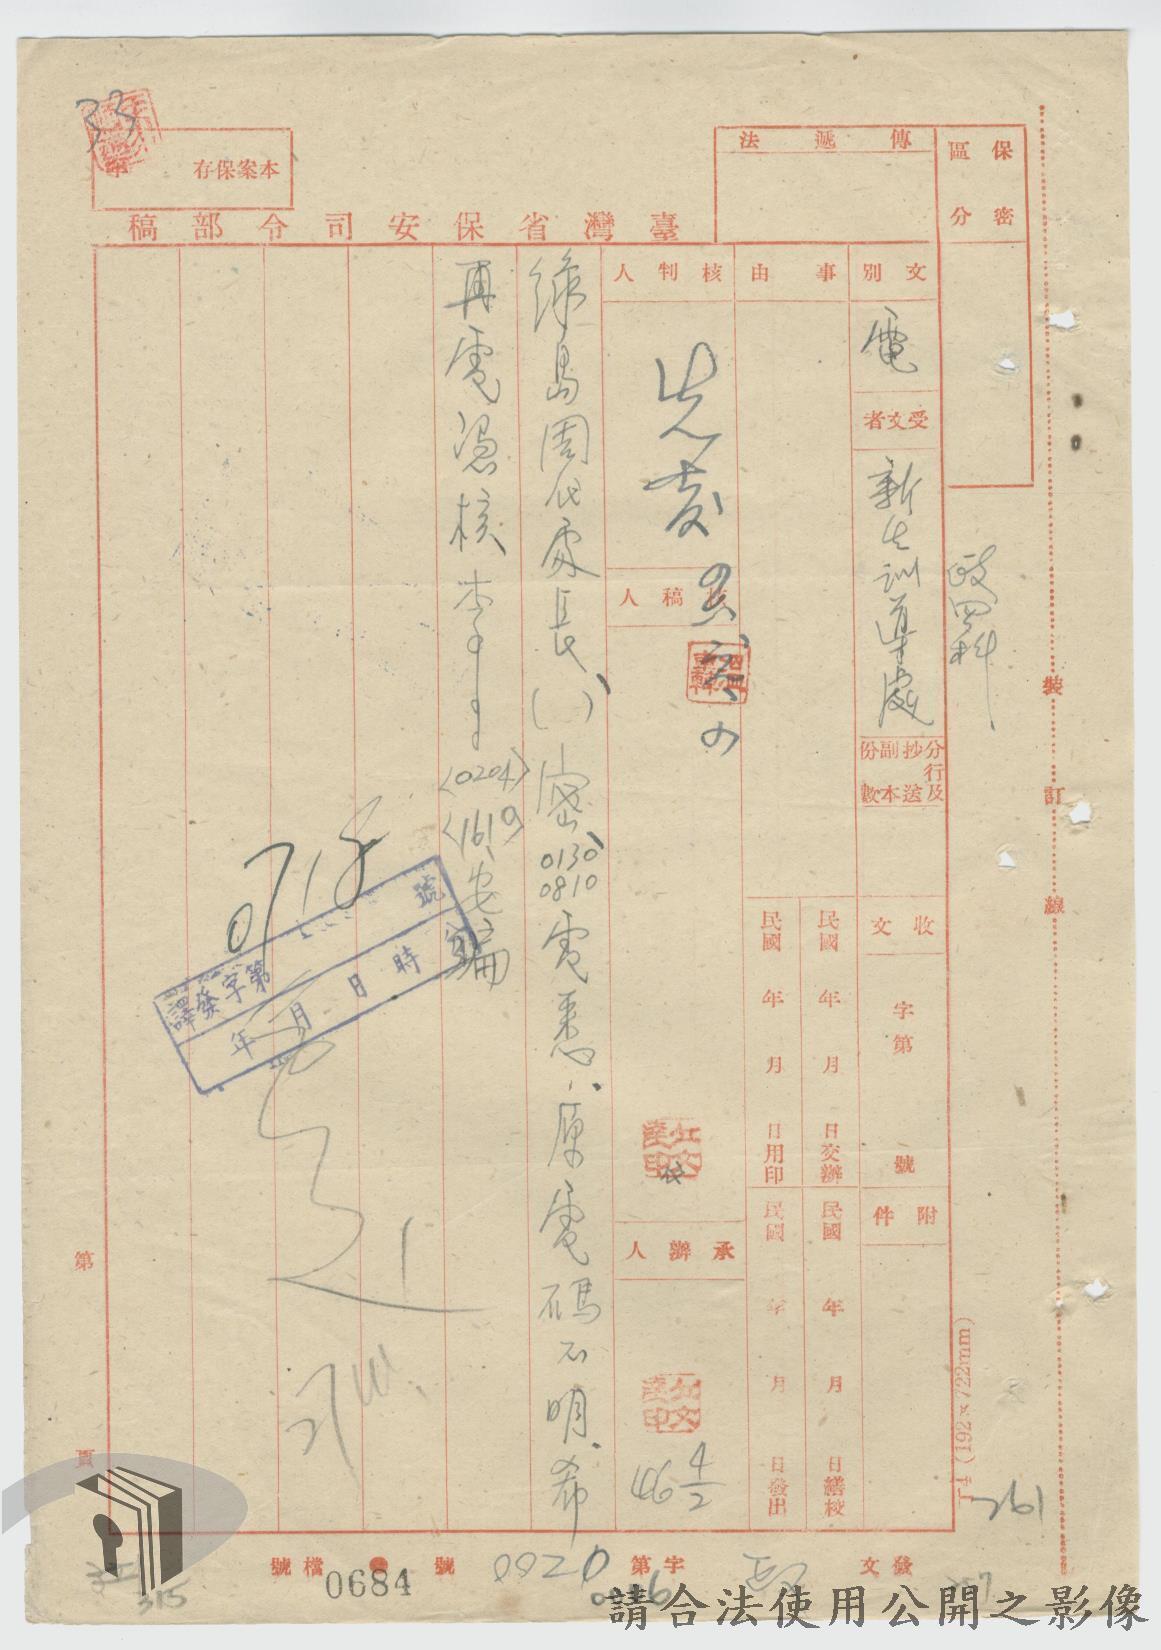 保密
區分
傳遞法
本案保存
年
33
臺灣省保安司令部稿
文別
電
受文者
新生訓導處
分行及
抄送
副本
份數
政四科
事由
核判人
先發
核稿人
承辦人
46 4/2
收文
字第
號
附件
民國 年 月 日交辦
民國 年 月 日繕校
民國 年 月 日用印
民國 年 月 日發出
綠島周代處長(一)密0130 0810電悉、原電碼不明、希
再電憑核李
〈0204〉
〈1619〉安
譯發字第 號
年 月 日 時
裝
訂
線
(192×722mm)
261
第
頁
發文
字第
0920
號
檔號
0684
315
257
請合法使用公開之影像